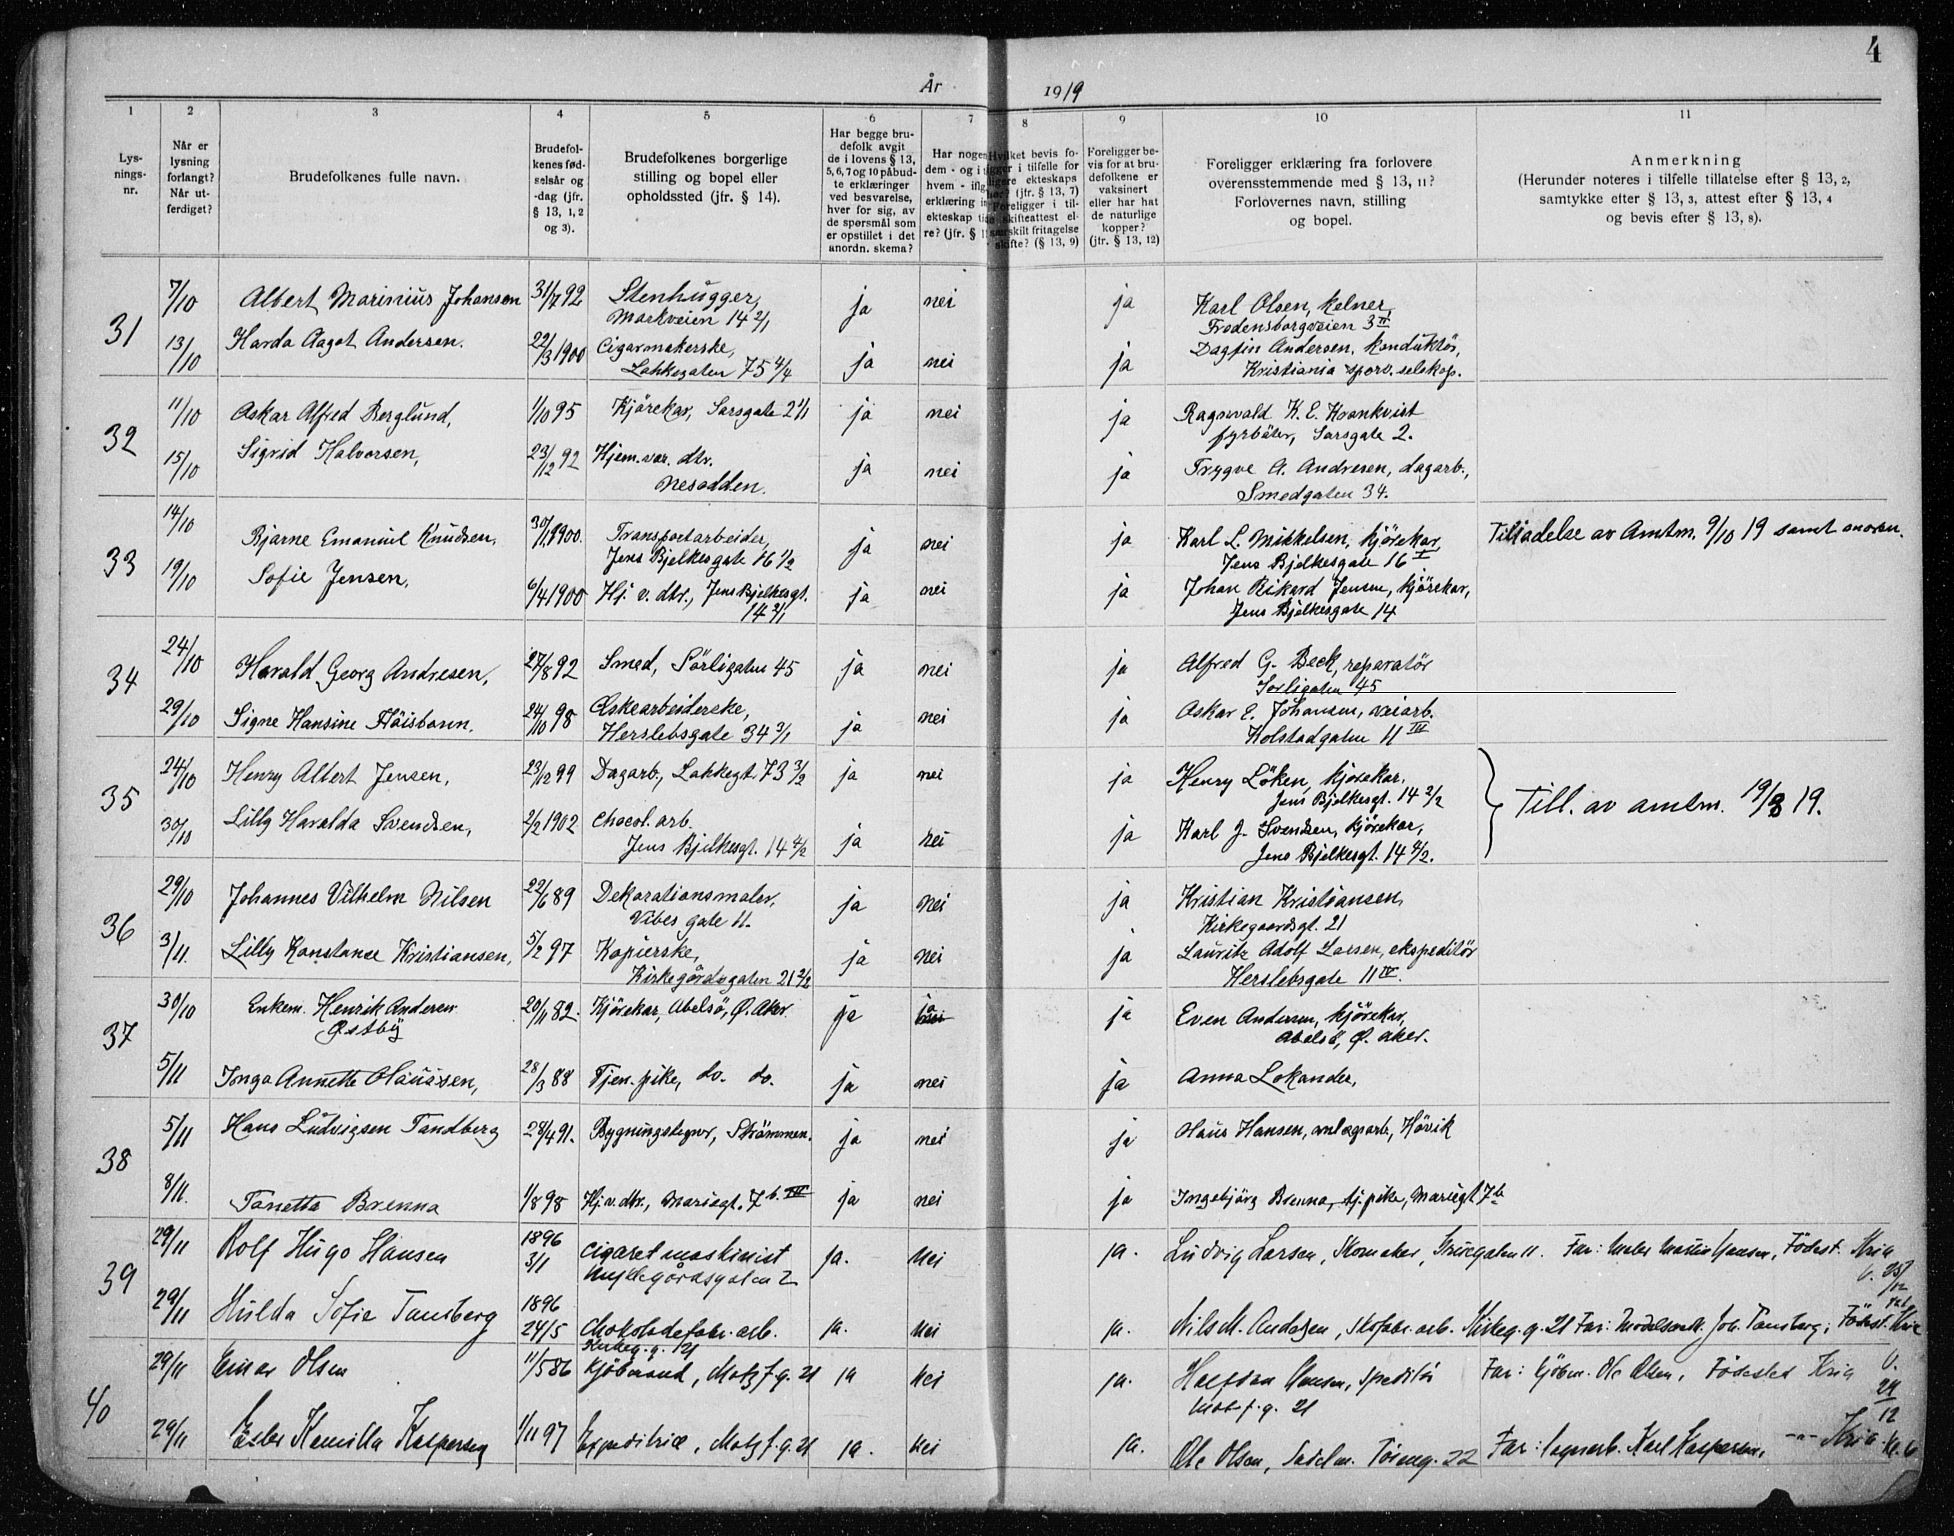 4
År 1919
1 2 3 4 5 6 7 8 9 10 11
Lys-
nings-
nr.
Når er
lysning
forlangt?
Når ut-
ferdiget?
Brudefolkenes fulle navn.
Brudefol-
kenes fød-
selsår og
-dag (jfr.
§ 13, 1, 2
og 3).
Brudefolkenes borgerlige
stilling og bopel eller
opholdssted (jfr. § 14).
Har begge bru-
defolk avgit
de i lovens § 13,
5, 6, 7 og 10 påbud-
te erklæringer
ved besvarelse,
hver for sig, av
de spørsmål som
er opstillet i det
anordn. skema?
Har nogen
dem - og i
hvem - ifl
erklæring
ekteskap
re? (jfr. §
Hvilket bevis fo-
ligger i tilfelle for
ligere ekteskaps
(jfr. § 13, 7)
Foreligger i til-
skifteattest el-
særskilt fritagelse
skifte? (§ 13, 9)
Foreligger be-
vis for at bru-
defolkene er
vaksinert
eller har hat
de naturlige
kopper?
(jfr. § 13, 12)
Foreligger erklæring fra forlovere
overensstemmende med § 13, 11?
Forlovernes navn, stilling
og bopel.
Anmerkning
(Herunder noteres i tilfelle tillatelse efter § 13, 2,
samtykke efter § 13, 3, attest efter § 13, 4
og bevis efter § 13, 8).
31 7/10 Albert Marinius Johansen 31/7 92 Stenhugger, ja nei ja Karl Olsen, kelner,
Markveien 14 2/1 Fredensborgveien 3 II
13/10 Harda Aagot Andersen. 22/3 1900 Cigarmakerske, ja nei ja Dagfin Andersen, konduktör,
Lakkegaten 75 4/4 Kristiania sporv. selskap.
32 11/10 Oskar Alfred Berglund, 1/10 95 Kjörekar, Sarsgate 2 1/1 ja nei ja Ragnvald K. E. Kronkvist
fyrböter, Sarsgate 2.
15/10 Sigrid Halvorsen, 23/12 92 Hjem.vær. dtr. ja nei ja Trygve A. Andresen, dagarb.,
Nesodden. Smedgaten 34.
33 14/10 Bjarne Emanuel Knudsen, 30/11 1900. Transportarbeider, ja nei ja Karl L. Mikkelsen, kjörekar, Tilladelse av Amtm. 9/10 19 samt moren.
Jens Bjelkesgate 16 1/2 Jens Bjelkesgate 16 I
19/10 Sofie Jensen, 6/4 1900 Hj. v. dtr., Jens Bjelkesgt. ja nei ja Johan Rikard Jensen, kjörekar,
14 2/1 Jens Bjelkesgate 14
34 24/10 Harald Georg Andresen, 27/8 92 Smed, Sörligaten 45 ja nei ja Alfred G. Beck, reparatör
Sorligaten 45
29/10 Signe Hansine Höisbonn, 24/10 98 Eskearbeiderske, ja nei ja Oskar E. Johansen, veiarb.
Herslebsgate 34 3/1 Kolstadgaten 11 IV
35 24/10 Henry Albert Jensen, 23/12 99 Dagarb., Lakkegt. 73 3/2 ja nei ja Henry Löken, kjörekar,
Jens Bjelkesgt. 14 2/2
Till. av amtm. 19/8 19.
30/10 Lilly Haralda Svendsen, 2/2 1902 Chocol. arb. ja nei ja Karl J. Svendsen, kjörekar,
Jens Bjelkesgt. 14 4/2 Jens Bjelkesgt. 14 4/2.
36 29/10 Johannes Vilhelm Nilsen 22/6 89 Dekorationsmaler, ja nei ja Kristian Kristiansen,
Vibes gate 11. Kirkegaardsgt. 21
3/11. Lilly Konstance Kristiansen, 5/2 97 Kopierske, ja nei ja Lauritz Adolf Larsen, ekspeditör
Kirkegårdsgaten 21 2/2 Herslebsgate 11 IV.
37 30/10 Enkem. Henrik Andersen 20/11 82. Kjörekar, Abelsö, Ø. Aker ja ja nei ja Even Andersen, kjörekar,
Østby Abelsö, Ø. Aker.
5/11 Inga Annette Olausen, 28/3 88 Tjen. pike, do. do. ja nei ja Anna Lokander,
38 5/11 Hans Ludvigsen Tandberg 28/4 91. Bygningstegner, Strömmen. ja nei ja Olaus Hansen, anlægsarb., Hövik
8/11. Tanetta Brenna 1/8 98 Hj. v. dtr., Mariegt. 7 b. III ja nei ja Ingebjörg Brenna, tj. pike, Mariegt 7 b
39 29/11 Rolf Hugo Hansen 1896 3/1 Cigaret maskinist ja. Nei ja. Ludvig Larsen, Skomaker, Gruegaten 11. Far: Maler Hansen, Födest. Kria
29/11 Hulda Sofie Tansberg 1896 24/5 Chokoladefabr. arb. ja. Nei ja. Nils M. Andersen, Skofabr. arb. Kirkeg. g. 21 Far: Modelsn. Joh. Tansberg, Födest. Kria
Kirkeg. g. 21
40 29/11 Einar Olsen 11/5 86 Kjöbmand, Motzf. g. 21 ja Nei ja. Halfdan Hansen, Speditör Far: Kjöbm. Ole Olsen, Födested Kria
Motzf. g. 21
29/11 Ester Kamilla Kaspersen 1/11 97 Expeditrice, Motzf. g. 21 ja. Nei ja. Ole Olsen, Sadelm. Töieng. 22 Far: Karl Kaspersen, -"- Kria